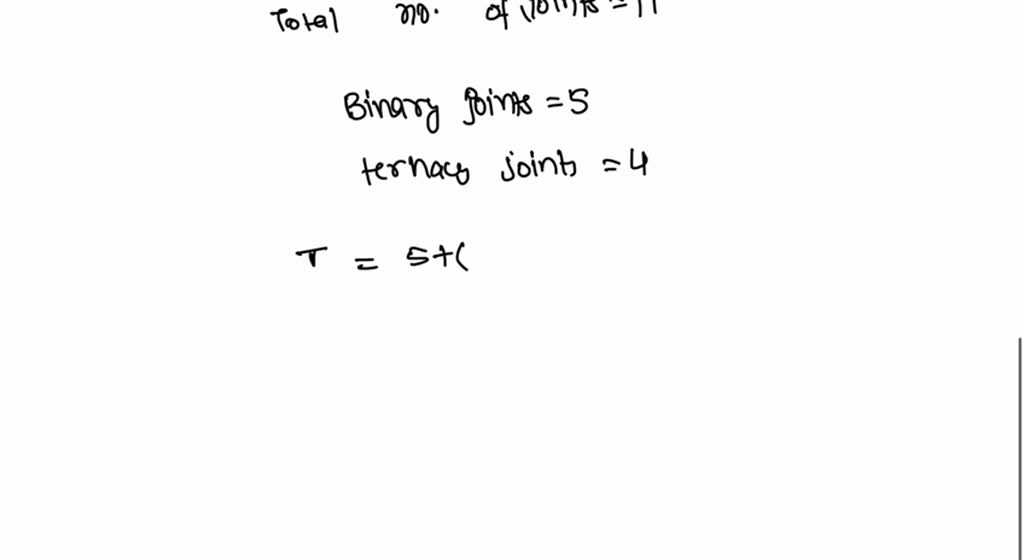 Total no. of joints = 11
Binary joints = 5
ternary joints = 4
T = 5+(